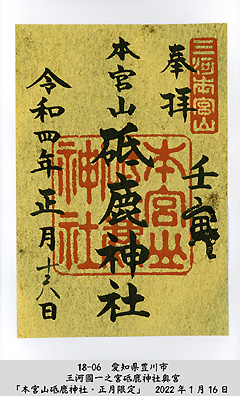 三河本宮山
奉拝
壬寅
本宮山
砥鹿神社
本宮山
神社
令和四年正月十六日
18-06　愛知県豊川市
三河國一之宮砥鹿神社奥宮
「本宮山砥鹿神社・正月限定」　2022年1月16日